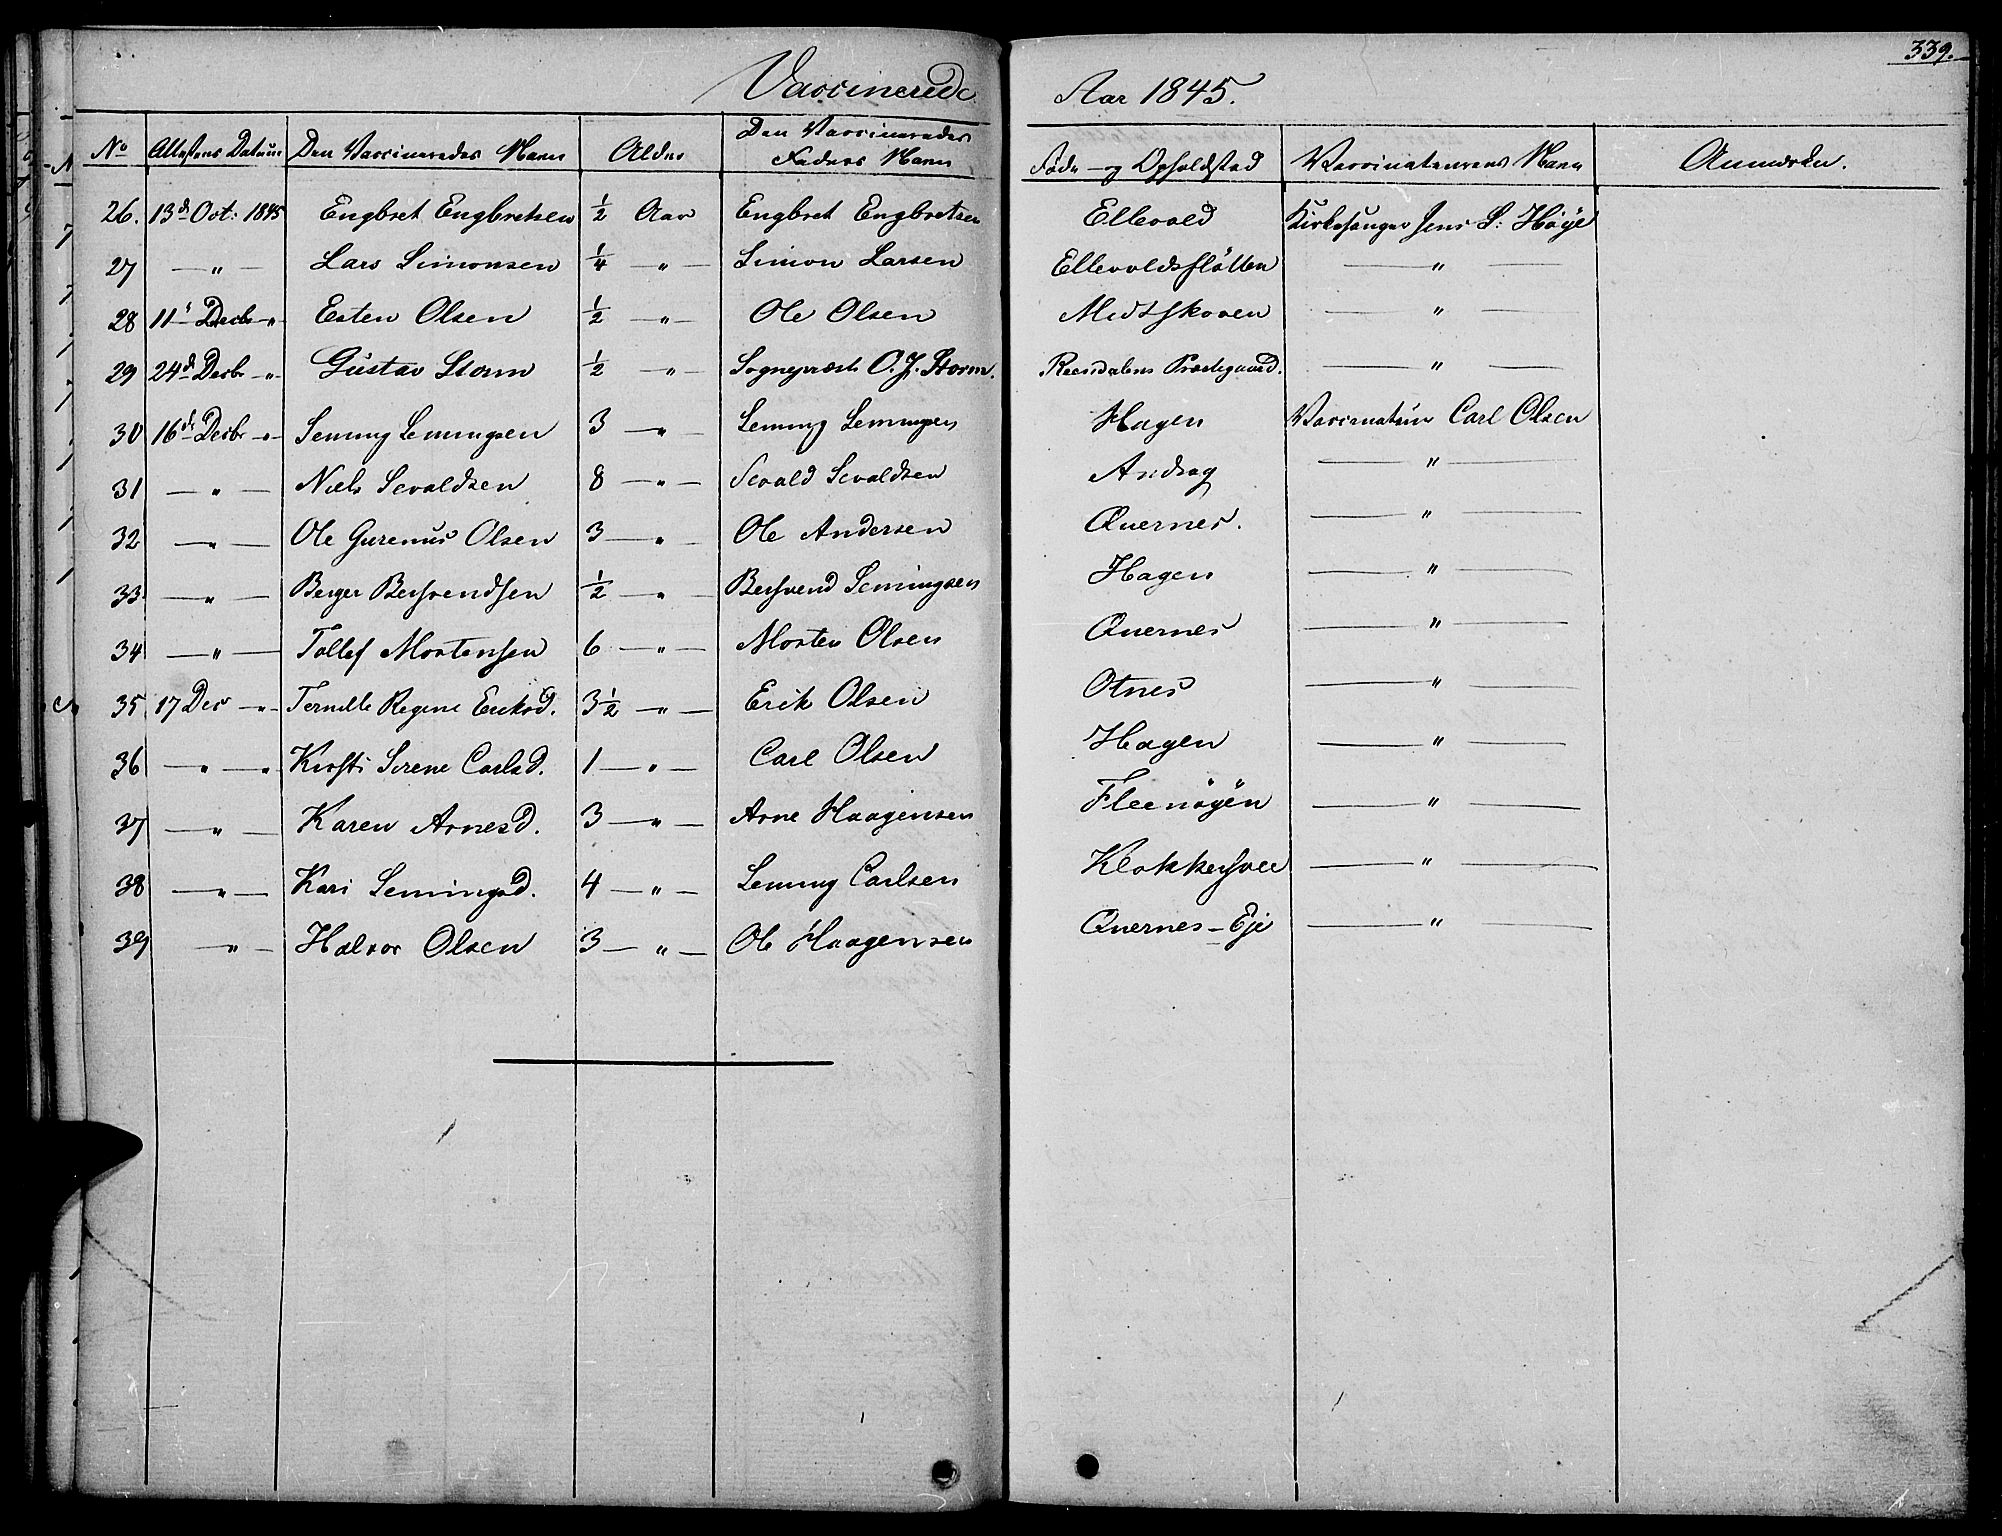 339.
Vaccinerede Aar 1845.
No Attestens Datum Den Vaccineredes Navn Alder Den Vaccineredes Faders Navn Føde- og Opholdsted Vaccinateurens Navn Anmærkn.
26. 13de Oct: 1845 Engbret Engbretsen ½ Aar Engbret Engbretsen Ellevold Kirkesanger Jens S: Høye
27 — " — Lars Simonsen ¼ — " — Simon Larsen Ellevoldsfløtten — " —
28 11te Decbr — " Esten Olsen ½ — " — Ole Olsen Midtskoven — " —
29 24de Decbr — " — Gustav Storm ½ — " — Sognepræst O. J. Storm. Reensdalens Præstegaard. — " —
30 16de Decbr — " — Seming Semingsen 3 — " — Seming Semingsen Hagen Vaccinateur Carl Olsen
31 — " — Niels Sevaldsen 8 — " — Sevald Sevaldsen Andrag — " —
32 — " — Ole Gurenius Olsen 3 — " — Ole Andersen Quernes. — " —
33 — " — Berger Bersvendsen ½ — " — Bersvend Semingsen Hagen — " —
34 — " — Tollef Mortensen 6 — " — Morten Olsen Quernes — " —
35 17 Dec — " — Pernille Regine Eriksd. 3½ — " — Erik Olsen Otnes — " —
36 — " — " Kirsti Sirene Carlsd. 1 — " — Carl Olsen Hagen — " —
37 — " — Karen Arnesd. 3 — " — Arne Haagensen Fleenøyen — " —
38 — " — Kari Semingsd. 4 — " — Seming Carlsen Klokkersvee — " —
39 " — Halvor Olsen 3 — " — Ole Haagensen Quernes-Eje — " —